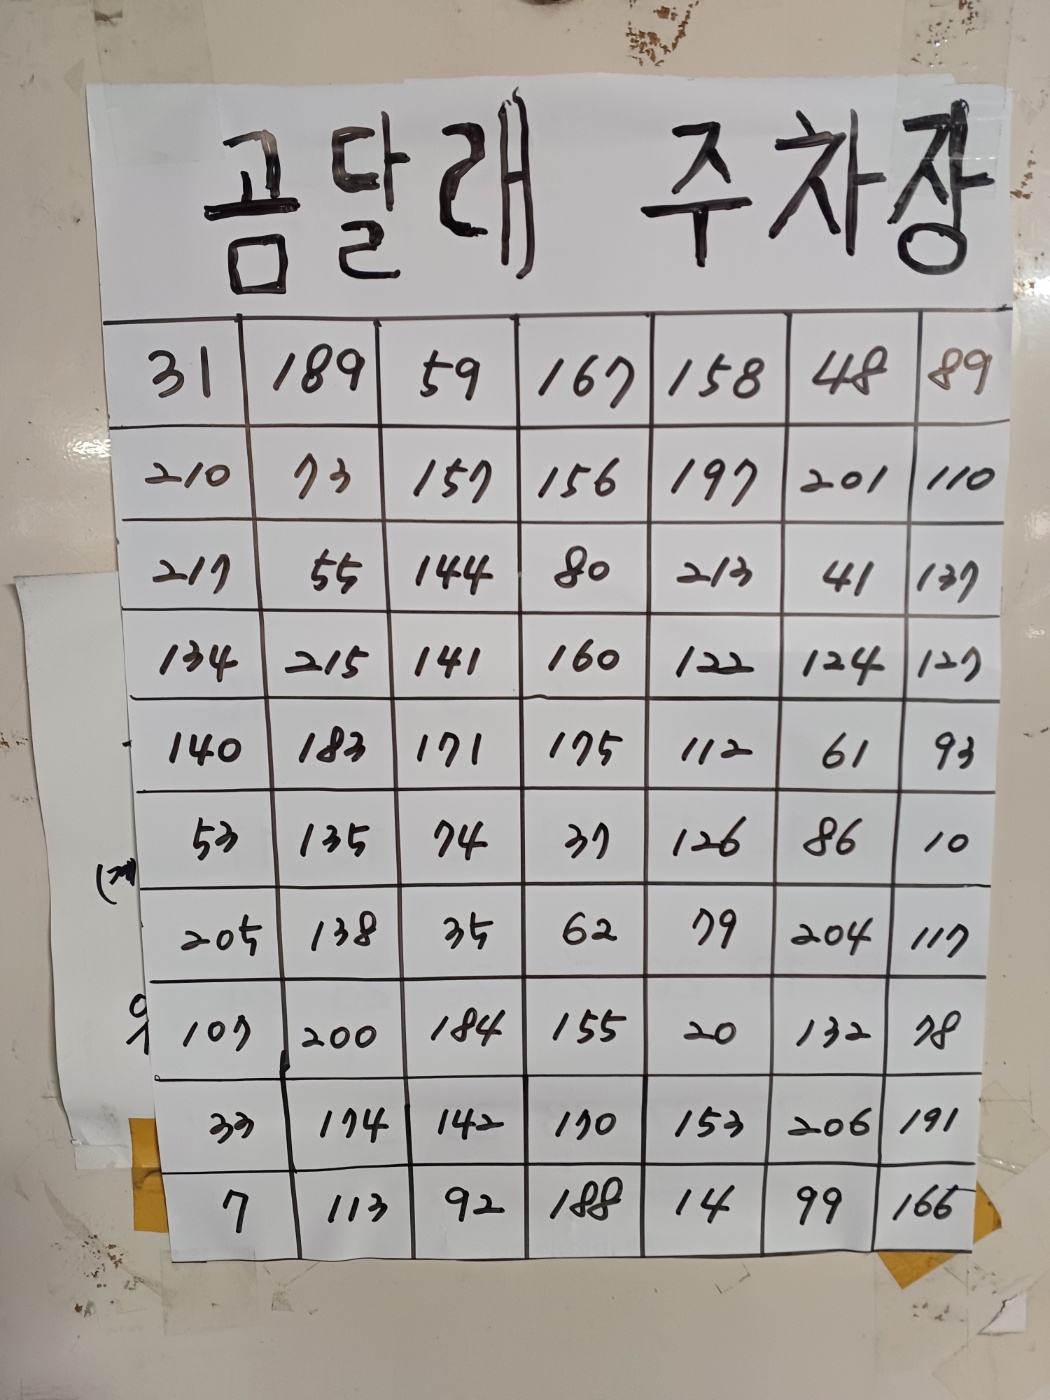 곰달래 주차장
31 189 59 167 158 48 89
210 73 157 156 197 201 110
217 55 144 80 213 41 137
134 215 141 160 122 124 127
140 183 171 175 112 61 93
53 135 74 37 126 86 10
205 138 35 62 79 204 117
107 200 184 155 20 132 78
33 174 142 170 153 206 191
7 113 92 188 14 99 166